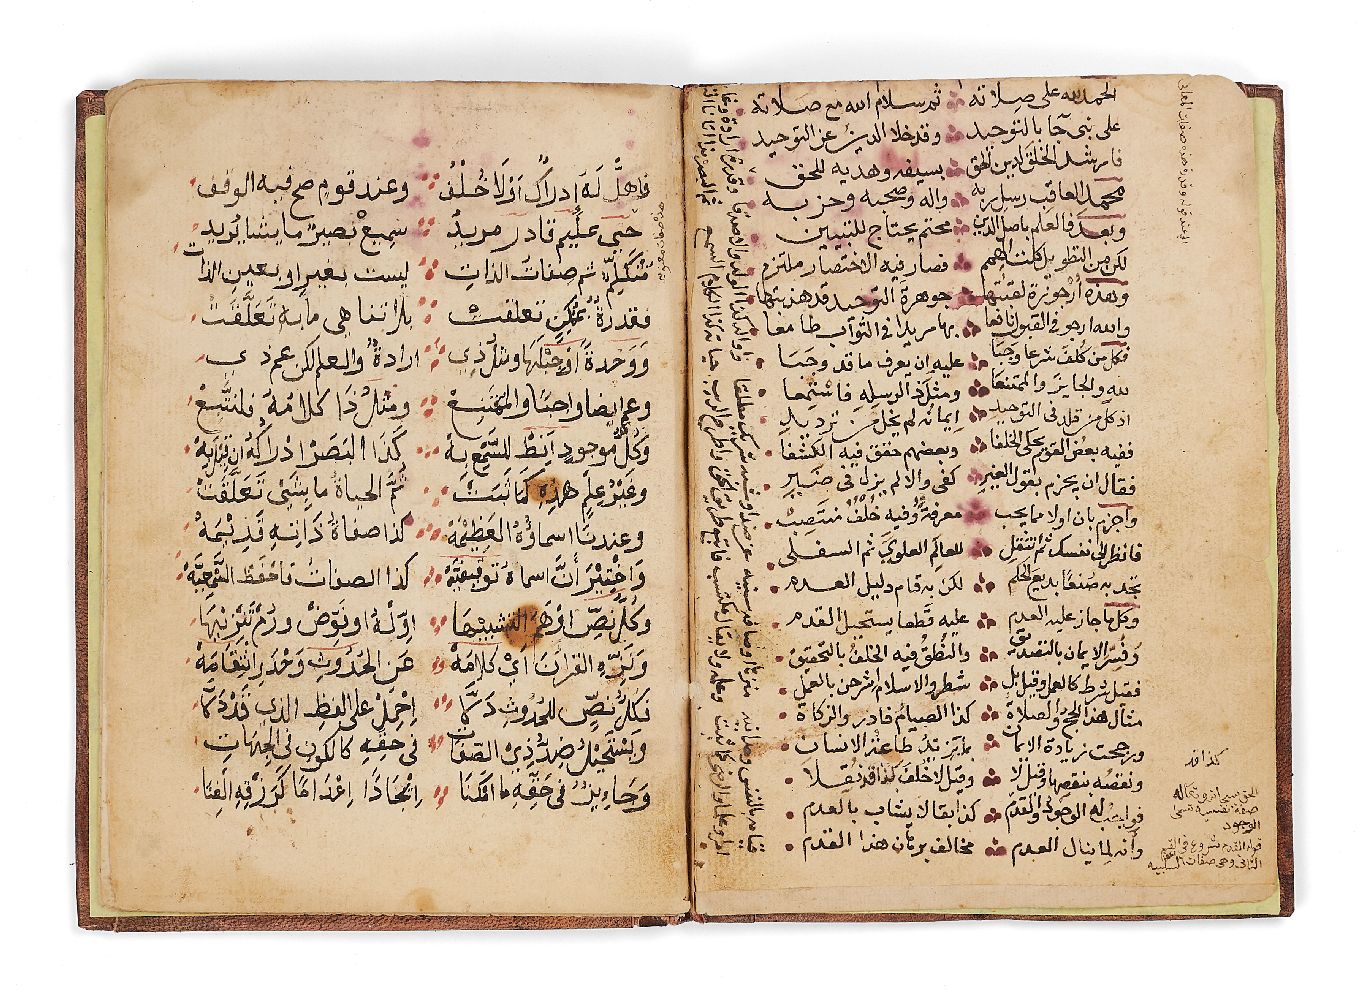 الحمد لله على صلاته ثم سلام الله مع صلاته
على نبي جا بالتوحيد وقد خلا الدين عن التوحيد
فارشد الخلق لدين الحق بسيفه وهديه للحق
محمد العاقب رسل ربه واله وصحبه وحزبه
وبعد فالعلم باصل الدين محتم يحتاج للتبيين
لكن من التطويل كلت الهمم فصار فيه الاختصار ملتزم
وهذه ارجوزة لقبتها جوهرة التوحيد قد هذبتها
والله ارجو في القبول نافعا بها مريدا في الثواب طامعا
فكل من كلف شرعا وجبا عليه ان يعرف ما قد وجبا
لله والجايز والممتنعا ومثل ذا لرسله فاستمعا
اذ كل من قلد في التوحيد ايمانه لم يخل من ترديد
ففيه بعض القوم يحكي الخلفا وبعضهم حقق فيه الكشفا
فقال ان يجزم بقول الغير كفى والا لم يزل في ضير
واجزم بان اولا مما يجب معرفة وفيه خلف منتصب
فانظر الى نفسك ثم انتقل للعالم العلوي ثم السفلي
تجد به صنعا بديع الحكم لكن به قام دليل العدم
وكل ما جاز عليه العدم عليه قطعا يستحيل القدم
وفسر الايمان بالتصديق والنطق فيه الخلف بالتحقيق
فقيل شرط كالعمل وقيل بل شطر والاسلام اشرحن بالعمل
مثال هذا الحج والصلاة كذا الصيام فادر والزكاة
ورجحت زيادة الايمان بما تزيد طاعة الانسان
ونقصه بنقصها وقيل لا وقيل لا خلف كذا قد نقلا
فواجب له الوجود والقدم كذا بقا لا يشاب بالعدم
وانه لما ينال العدم مخالف برهان هذا القدم
قيامه بالنفس وحدانيه منزها اوصافه سنيه عن ضد او شبه شريك مطلقا ووالد كذا الولد والاصدقا وقدرة ارادة وغايرت
امرا وعلما والرضى كما ثبت وعلمه ولا يقال مكتسب فاتبع طريق الحق واطرح الريب حياته كذا الكلام السمع ثم البصر بذا اتانا السمع
فهل له ادراك او لا خلف وعند قوم صح فيه الوقف
حي عليم قادر مريد سميع بصير ما يشا يريد
متكلم ثم صفات الذات ليست بغير او بعين الذات
فقدرة بممكن تعلقت بلا تناهي ما به تعلقت
ووحدة اوجب لها ومثل ذي ارادة والعلم لكن عم ذي
وعم ايضا واجبا والممتنع ومثل ذا كلامه فلنتبع
وكل موجود انط للسمع به كذا البصر ادراكه ان قيل به
وغير علم هذه كما ثبت ثم الحياة ما بشئ تعلقت
وعندنا اسماؤه العظيمه كذا صفاة ذاته قديمه
واختير ان اسماه توقيفيه كذا الصفات فاحفظ السمعيه
وكل نص اوهم التشبيها اوله او فوض ورم تنزيها
ونزه القران اي كلامه عن الحدوث وحذر انتقامه
فكل نص للحدوث دلا احمل على اللفظ الذي قد دلا
ويستحيل ضد ذي الصفات في حقه كالكون في الجهات
وجايز في حقه ما امكنا ايجادا اعداما كرزقه الغنا